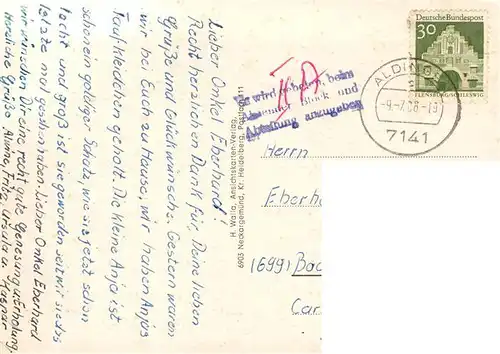 Lieber Onkel Eberhard!
Recht herzlichen Dank für Deine lieben
Grüße und Glückwünsche. Gestern waren
wir bei Euch zu Hause, wir haben Anjas
Taufkleidchen geholt. Die kleine Anja ist
schon ein goldiger Schatz, wie sie jetzt schon
lacht und groß ist sie geworden seit wir sie das
letzte mal gesehen haben. Lieber Onkel Eberhard
wir wünschen Dir eine recht gute Genesung u. Erholung.
Herzliche Grüße Ursula u.
H. Walla, Ansichtskarten-Verlag,
6903 Neckargemünd, Kr. Heidelberg, Postfach 111
Es wird gebeten, beim
Block und
Abteilung anzugeben
Deutsche Bundespost
30
FLENSBURG/SCHLESWIG
ALDING
7141
Herrn
Eberha
(6991) Ba
Car